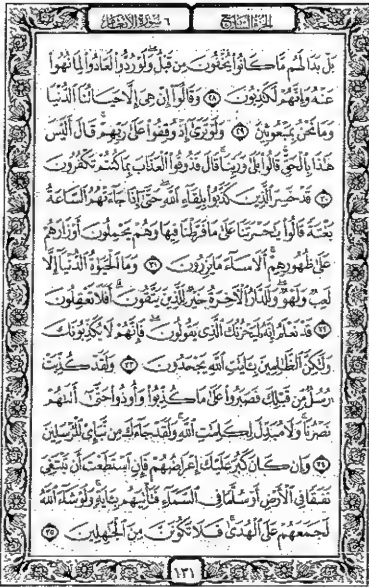 الجزء السابع
٦ سورة الأنعام
بَلْ بَدَا لَهُم مَّا كَانُوا۟ يُخْفُونَ مِن قَبْلُ ۖ وَلَوْ رُدُّوا۟ لَعَادُوا۟ لِمَا نُهُوا۟
عَنْهُ وَإِنَّهُمْ لَكَٰذِبُونَ ٢٨ وَقَالُوٓا۟ إِنْ هِىَ إِلَّا حَيَاتُنَا ٱلدُّنْيَا
وَمَا نَحْنُ بِمَبْعُوثِينَ ٢٩ وَلَوْ تَرَىٰٓ إِذْ وُقِفُوا۟ عَلَىٰ رَبِّهِمْ ۚ قَالَ أَلَيْسَ
هَٰذَا بِٱلْحَقِّ ۚ قَالُوا۟ بَلَىٰ وَرَبِّنَا ۚ قَالَ فَذُوقُوا۟ ٱلْعَذَابَ بِمَا كُنتُمْ تَكْفُرُونَ
٣٠ قَدْ خَسِرَ ٱلَّذِينَ كَذَّبُوا۟ بِلِقَآءِ ٱللَّهِ ۖ حَتَّىٰٓ إِذَا جَآءَتْهُمُ ٱلسَّاعَةُ
بَغْتَةً قَالُوا۟ يَٰحَسْرَتَنَا عَلَىٰ مَا فَرَّطْنَا فِيهَا وَهُمْ يَحْمِلُونَ أَوْزَارَهُمْ
عَلَىٰ ظُهُورِهِمْ ۚ أَلَا سَآءَ مَا يَزِرُونَ ٣١ وَمَا ٱلْحَيَوٰةُ ٱلدُّنْيَآ إِلَّا
لَعِبٌ وَلَهْوٌ ۖ وَلَلدَّارُ ٱلْءَاخِرَةُ خَيْرٌ لِّلَّذِينَ يَتَّقُونَ ۗ أَفَلَا تَعْقِلُونَ
٣٢ قَدْ نَعْلَمُ إِنَّهُۥ لَيَحْزُنُكَ ٱلَّذِى يَقُولُونَ ۖ فَإِنَّهُمْ لَا يُكَذِّبُونَكَ
وَلَٰكِنَّ ٱلظَّٰلِمِينَ بِـَٔايَٰتِ ٱللَّهِ يَجْحَدُونَ ٣٣ وَلَقَدْ كُذِّبَتْ
رُسُلٌ مِّن قَبْلِكَ فَصَبَرُوا۟ عَلَىٰ مَا كُذِّبُوا۟ وَأُوذُوا۟ حَتَّىٰٓ أَتَىٰهُمْ
نَصْرُنَا ۚ وَلَا مُبَدِّلَ لِكَلِمَٰتِ ٱللَّهِ ۚ وَلَقَدْ جَآءَكَ مِن نَّبَإِى۟ ٱلْمُرْسَلِينَ
٣٤ وَإِن كَانَ كَبُرَ عَلَيْكَ إِعْرَاضُهُمْ فَإِنِ ٱسْتَطَعْتَ أَن تَبْتَغِىَ
نَفَقًا فِى ٱلْأَرْضِ أَوْ سُلَّمًا فِى ٱلسَّمَآءِ فَتَأْتِيَهُم بِـَٔايَةٍ ۚ وَلَوْ شَآءَ ٱللَّهُ
لَجَمَعَهُمْ عَلَى ٱلْهُدَىٰ ۚ فَلَا تَكُونَنَّ مِنَ ٱلْجَٰهِلِينَ ٣٥
١٣١